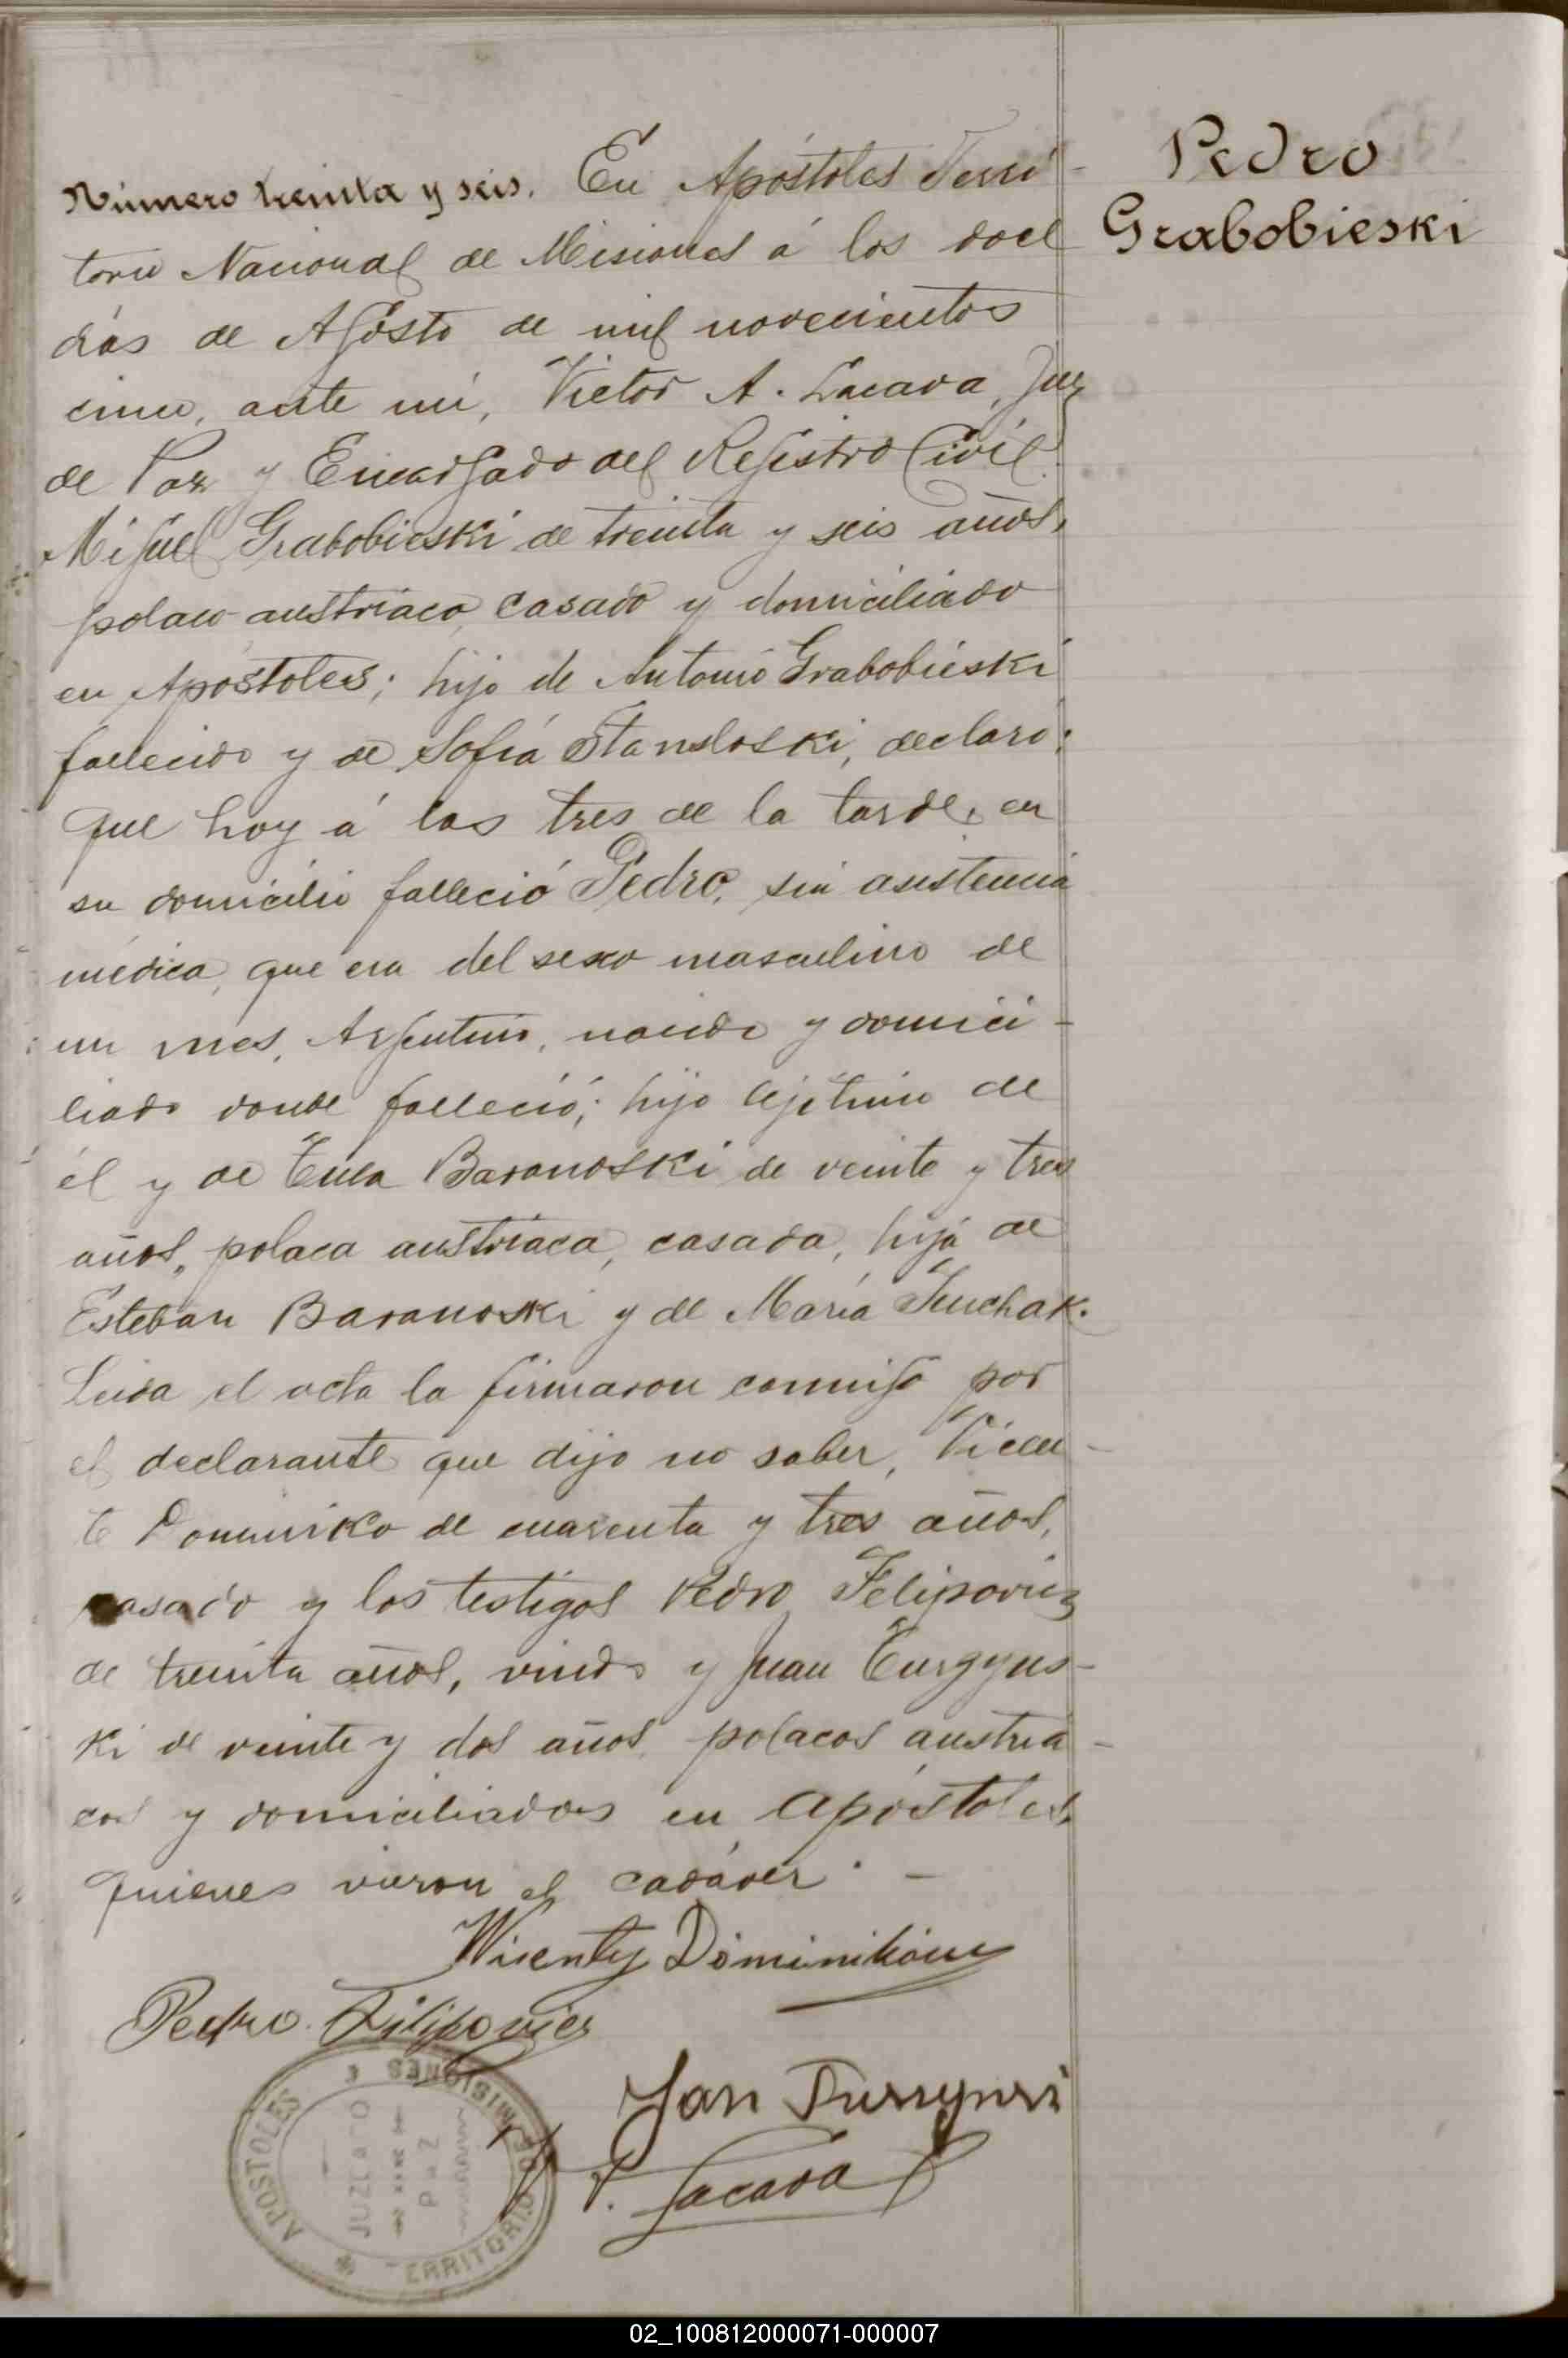 Pedro
Grabobieski
Número treinta y seis. En Apóstoles Terri-
torio Nacional de Misiones á los doce
días de Agosto de mil novecientos
cinco, ante mí, Victor A. Lacava, Juez
de Paz y Encargado del Registro Civil
Miguel Grabobieski de treinta y seis años,
polaco austriaco, casado y domiciliado
en Apóstoles; hijo de Antonio Grabobieski
fallecido y de Sofía Stansloski, declaró:
que hoy á las tres de la tarde, en
su domicilio falleció Pedro, sin asistencia
médica, que era del sexo masculino de
un mes, Argentino, nacido y domici-
liado donde falleció; hijo lejítimo de
él y de Baranoski de veinte y tres
años, polaca austriaca, casada, hija de
Esteban Baranoski y de María
Leida el acta la firmaron conmigo por
el declarante que dijo no saber, Vicen-
te Dominiko de cuarenta y tres años,
casado y los testigos Pedro Felipoviez
de treinta años, viudo y Juan
ki de veinte y dos años, polacos austria-
cos y domiciliados en Apóstoles,
quienes vieron el cadáver. —
Wicenty
Pedro Filipovicz
Jan
V. Lacava
APOSTOLES
TERRITORIO DE MISIONES
JUZGADO
DE
PAZ
02_100812000071-000007